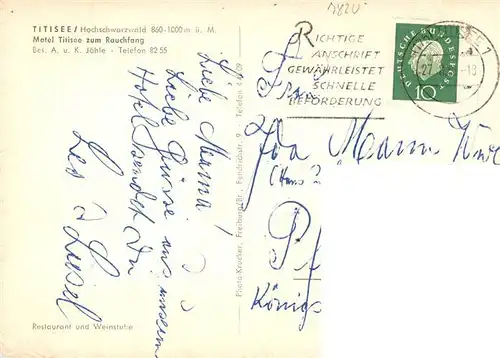 TITISEE / Hochschwarzwald 860-1000 m ü. M.
Motel Titisee zum Rauchfang
Bes. A. u. K. Jähle - Telefon 82 55
Liebe Mama!
Liebe Grüsse aus unserem
Hotel sendet Dir
Liesel
Restaurant und Weinstube
Photo-Krucker, Freiburg/Br., Fendrichstr. 9 - Telefon
1820
RICHTIGE
ANSCHRIFT
GEWÄHRLEISTET
SCHNELLE
BEFÖRDERUNG
DEUTSCHE BUNDESPOST
10
27
Frau
Ida Mann
Königs